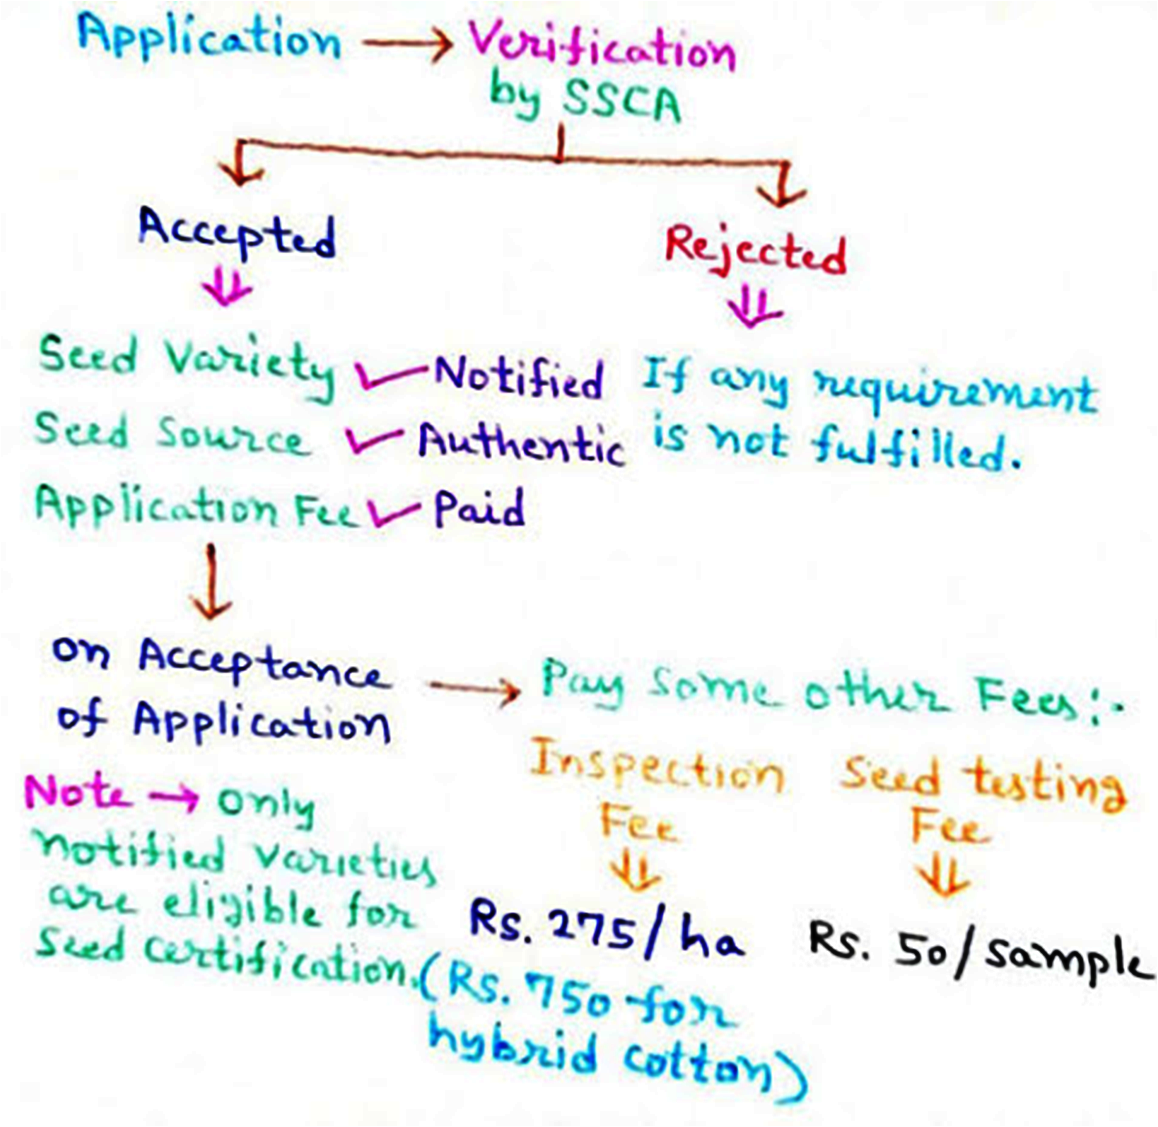 Application → Verification
by SSCA
Accepted
Rejected
Seed Variety ✓ Notified
Seed Source ✓ Authentic
Application Fee ✓ Paid
If any requirement
is not fulfilled.
on Acceptance
of Application
→ Pay some other Fees:-
Inspection
Fee
Rs. 275/ha
(Rs. 750 for
hybrid cotton)
Seed testing
Fee
Rs. 50/sample
Note → only
notified varieties
are eligible for
seed certification.